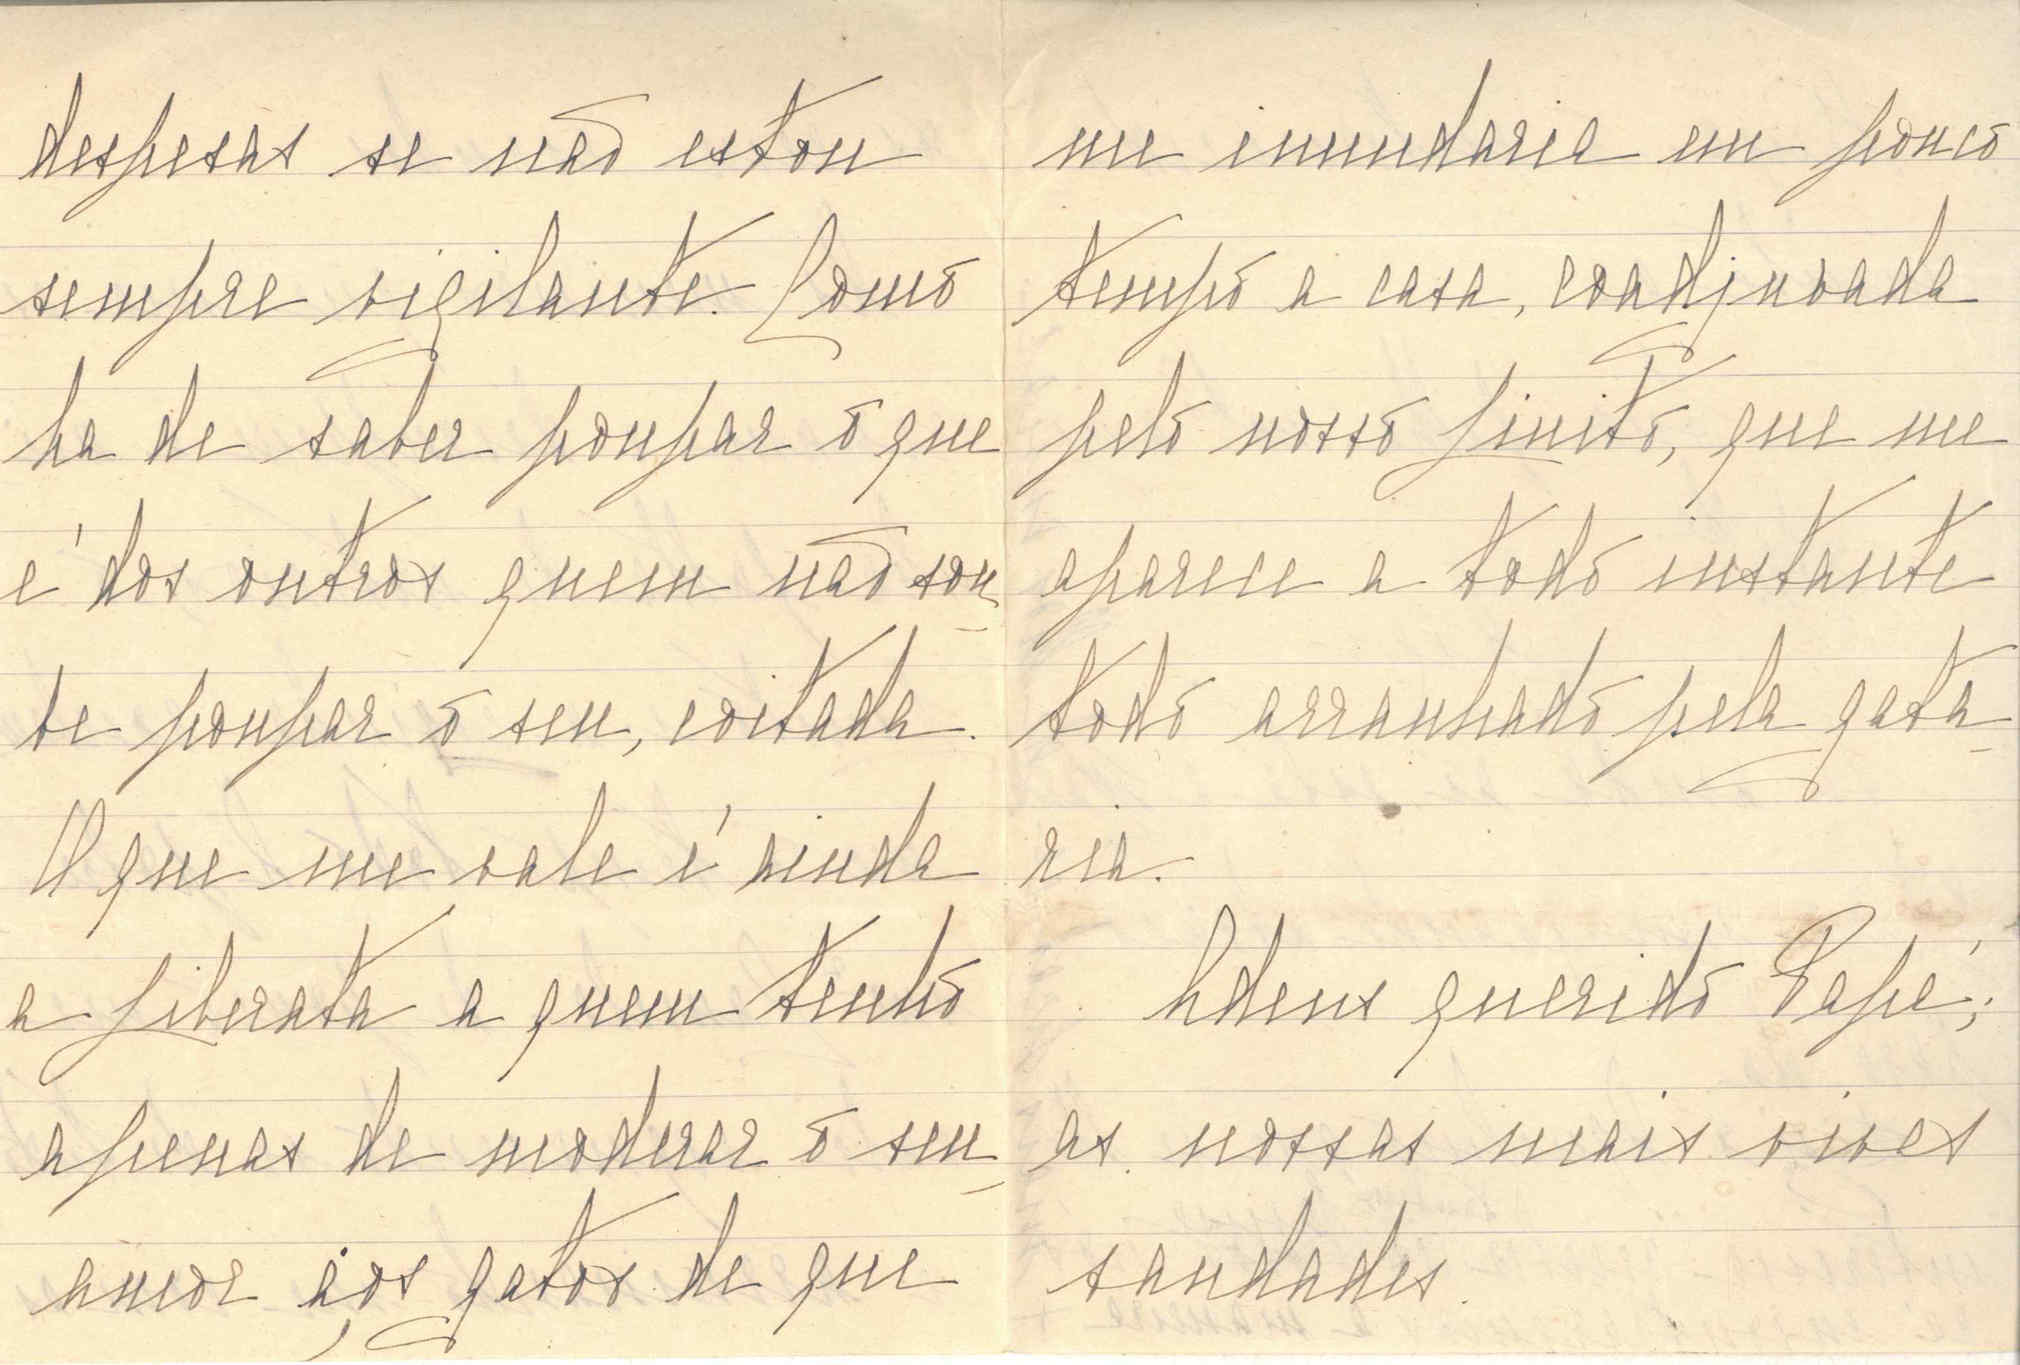 despesas se não estou
sempre vigilante. Como
ha de saber poupar o que
é dos outros quem não sou
be poupar o seu, coitada.
O que me vale é ainda
a Liberata a quem tenho
apenas de moderar o seu
amor aos gatos de que
me inundaria em pouco
tempo a casa, coadjuvada
pelo nosso Linito, que me
aparece a todo instante
todo arranhado pela gata
ria.
Adeus querido Papé;
as nossas mais vivas
saudades.